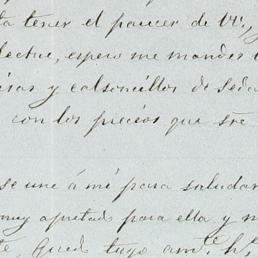 tener el parecer de VV.,
espero me mandes
y calsoncillos de seda
con los precios que
se une á mi para saludar
muy apretad para ella y
Qued tuyo amº. hº.